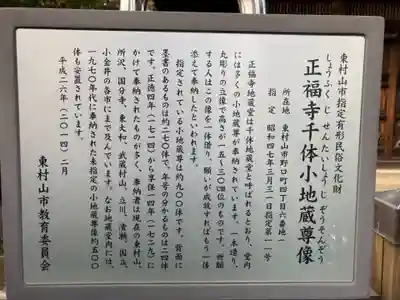 東村山市指定有形民俗文化財
しょうふくじせんたいしょうじぞうそんぞう
正福寺千体小地蔵尊像
所在地 東村山市野口町四丁目六番地一
指定 昭和四七年三月三一日指定第一一号
正福寺地蔵堂は千体地蔵堂と呼ばれるとおり、堂内
には多くの小地蔵尊が奉納されています。一木造り、
丸彫りの立像で高さが一五~三〇㎝位のものです。祈願
する人はこの像を一体借り、願いが成就すればもう一体
添えて奉納したといわれます。
指定されている小地蔵尊は約九〇〇体です。背面に
墨書のあるものは約二七〇体で、年号の分かるものは二四体
です。正徳四年(一七一四)から享保一四年(一七二九)に
かけて奉納されたものが多く、奉納者は現在の東村山、
所沢、国分寺、東大和、武蔵村山、立川、清瀬、国立、
小金井の各市にまで及んでいます。なお地蔵堂内には、
一九七〇年代に奉納された未指定の小地蔵尊像約五〇〇
体も安置されています。
平成二六年(二〇一四)二月
東村山市教育委員会